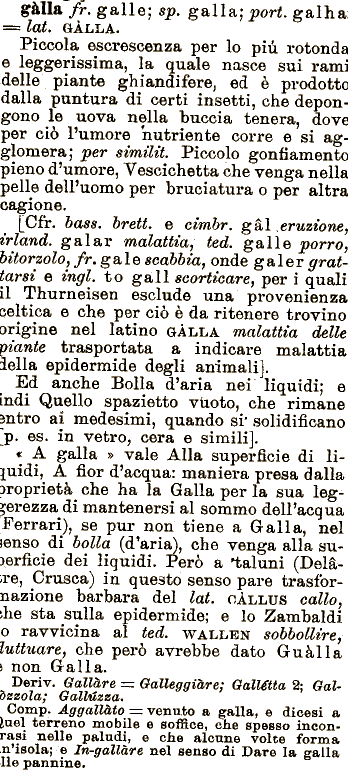 gàlla fr. galle; sp. galla; port. galha
= lat. GÀLLA.
Piccola escrescenza per lo piú rotonda
e leggerissima, la quale nasce sui rami
delle piante ghiandifere, ed è prodotto
dalla puntura di certi insetti, che depon-
gono le uova nella buccia tenera, dove
per ciò l'umore nutriente corre e si ag-
glomera; per similit. Piccolo gonfiamento
pieno d'umore, Vescichetta che venga nella
pelle dell'uomo per bruciatura o per altra
cagione.
[Cfr. bass. brett. e cimbr. gâl eruzione,
irland. galar malattia, ted. galle porro,
bitorzolo, fr. gale scabbia, onde galer grat-
tarsi e ingl. to gall scorticare, per i quali
il Thurneisen esclude una provenienza
celtica e che per ciò è da ritenere trovino
origine nel latino GÀLLA malattia delle
piante trasportata a indicare malattia
della epidermide degli animali].
Ed anche Bolla d'aria nei liquidi; e
indi Quello spazietto vuoto, che rimane
entro ai medesimi, quando si solidificano
[p. es. in vetro, cera e simili].
« A galla » vale Alla superficie di li-
quidi, A fior d'acqua: maniera presa dalla
proprietà che ha la Galla per la sua leg-
gerezza di mantenersi al sommo dell'acqua
(Ferrari), se pur non tiene a Galla, nel
senso di bolla (d'aria), che venga alla su-
perficie dei liquidi. Però a taluni (Delâ-
tre, Crusca) in questo senso pare trasfor-
mazione barbara del lat. CÀLLUS callo,
che sta sulla epidermide; e lo Zambaldi
lo ravvicina al ted. WALLEN sobbollire,
fluttuare, che però avrebbe dato Guàlla
e non Galla.
Deriv. Gallàre = Galleggiàre; Gallétta 2; Gal-
lòzzola; Gallúzza.
Comp. Aggallàto = venuto a galla, e dicesi a
Quel terreno mobile e soffice, che spesso incon-
trasi nelle paludi, e che alcune volte forma
un'isola; e In-gallàre nel senso di Dare la galla
alle pannine.